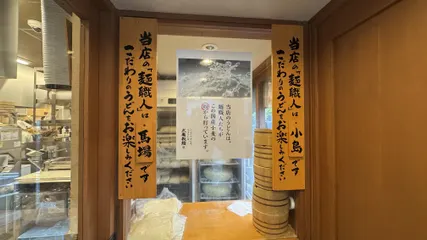 当店の「麺職人」は、小島です
こだわりのうどんをお楽しみください
当店のうどんは、
麺職人たちが
この国産小麦の
から打っています。
丸亀製麺
当店の「麺職人」は、馬場です
こだわりのうどんをお楽しみください